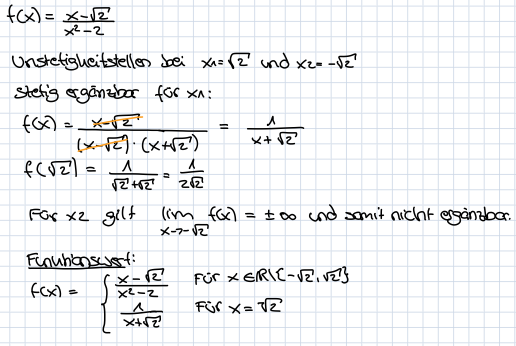 f(x) = (x-√2)/(x²-2)
Unstetigkeitsstellen bei x1=√2 und x2=-√2
stetig ergänzbar für x1:
f(x) = (x-√2)/((x-√2)·(x+√2)) = 1/(x+√2)
f(√2) = 1/(√2+√2) = 1/(2√2)
Für x2 gilt lim x→-√2 f(x) = ±∞ und somit nicht ergänzbar.
Funktionswert:
f(x) = { (x-√2)/(x²-2) Für x∈ℝ\{-√2,√2}
1/(x+√2) Für x=√2